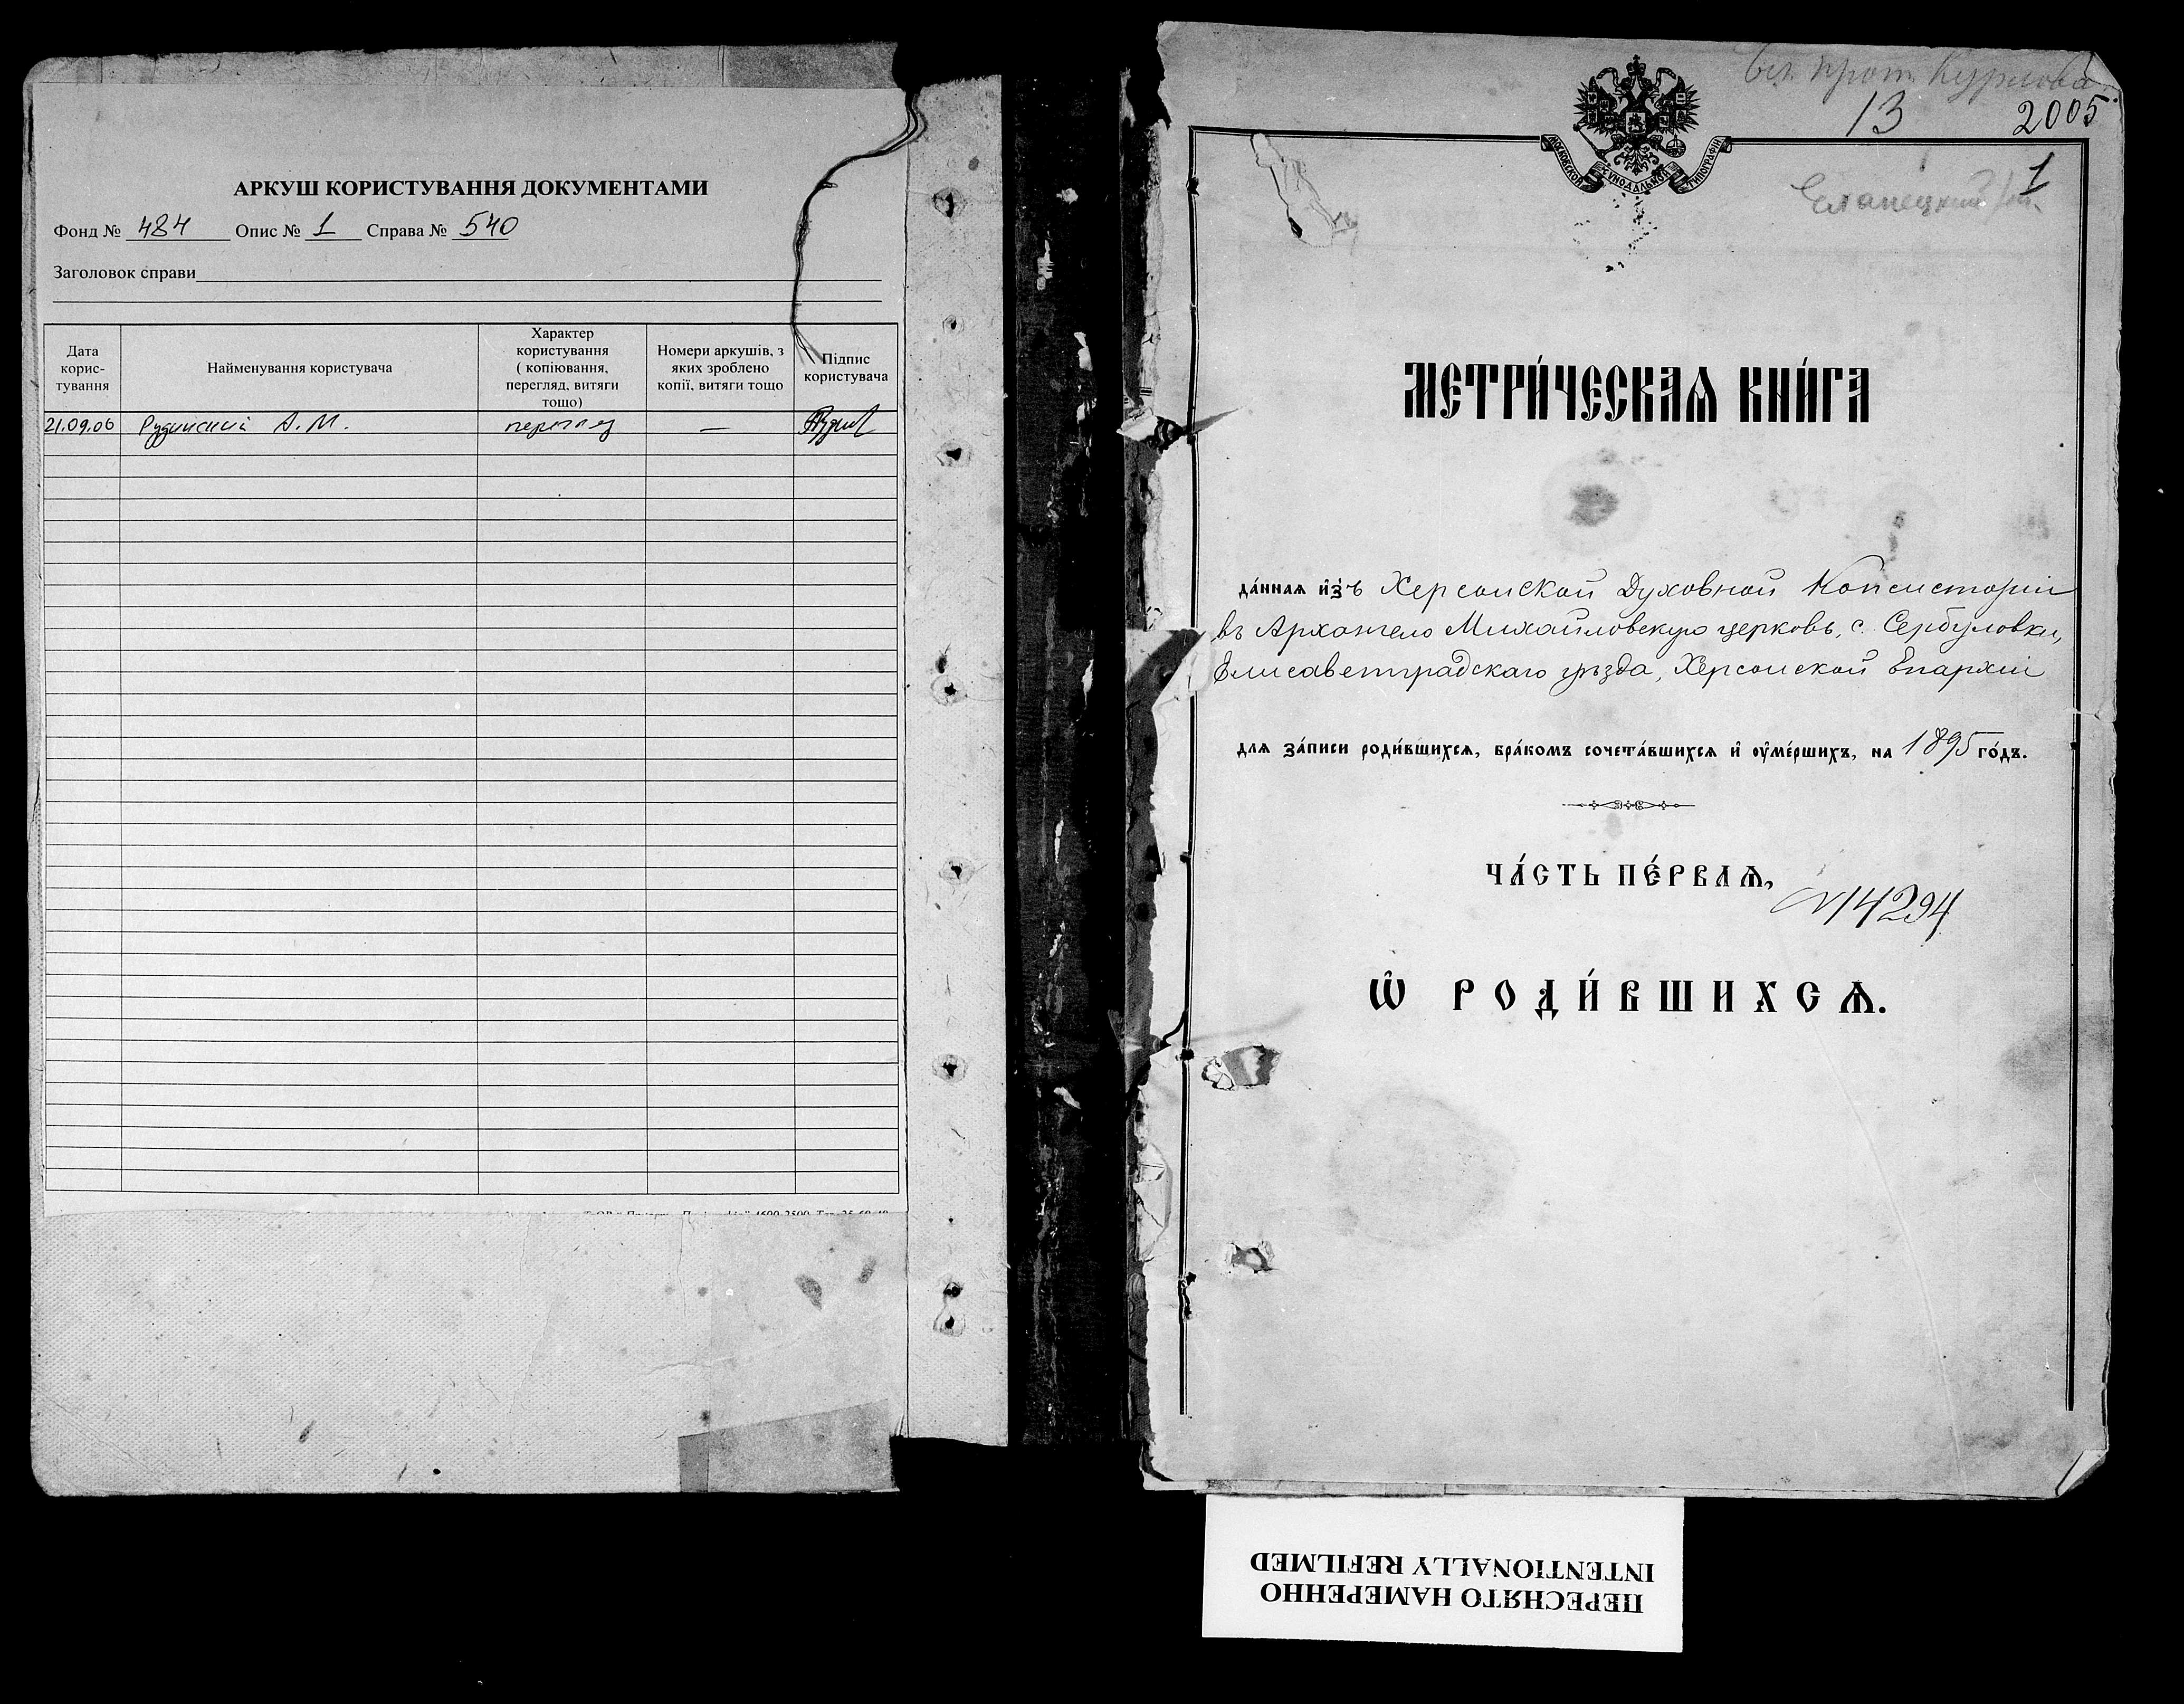 АРКУШ КОРИСТУВАННЯ ДОКУМЕНТАМИ
Фонд № 484 Опис № 1 Справа № 540
Заголовок справи
Дата корис-тування
Найменування користувача
Характер користування ( копіювання, перегляд, витяги тощо)
Номери аркушів, з яких зроблено копії, витяги тощо
Підпис користувача
21.09.06 А. М. перегляд —
13 2005
1
Еланецкий
МОСКОВСКОЙ СѴНОДАЛЬНОЙ ТИПОГРАФІИ
МЕТРИ́ЧЕСКАѦ КНИ́ГА
да́ннаѧ и҆зъ Херсонской Духовной Консисторіи
въ Архангело Михайловскую церковь, с. Сербуловки,
Елисаветградскаго уѣзда, Херсонской Епархіи
длѧ за́писи роди́вшихсѧ, бра́комъ сочета́вшихсѧ и҆ ᲂу҆ме́ршихъ, на 1895 го́дъ.
ЧА́СТЬ ПЕ́РВАѦ,
№ 14294
Ѡ҆ РОДИ́ВШИХСѦ.
ПЕРЕСНЯТО НАМЕРЕННО
INTENTIONALLY REFILMED